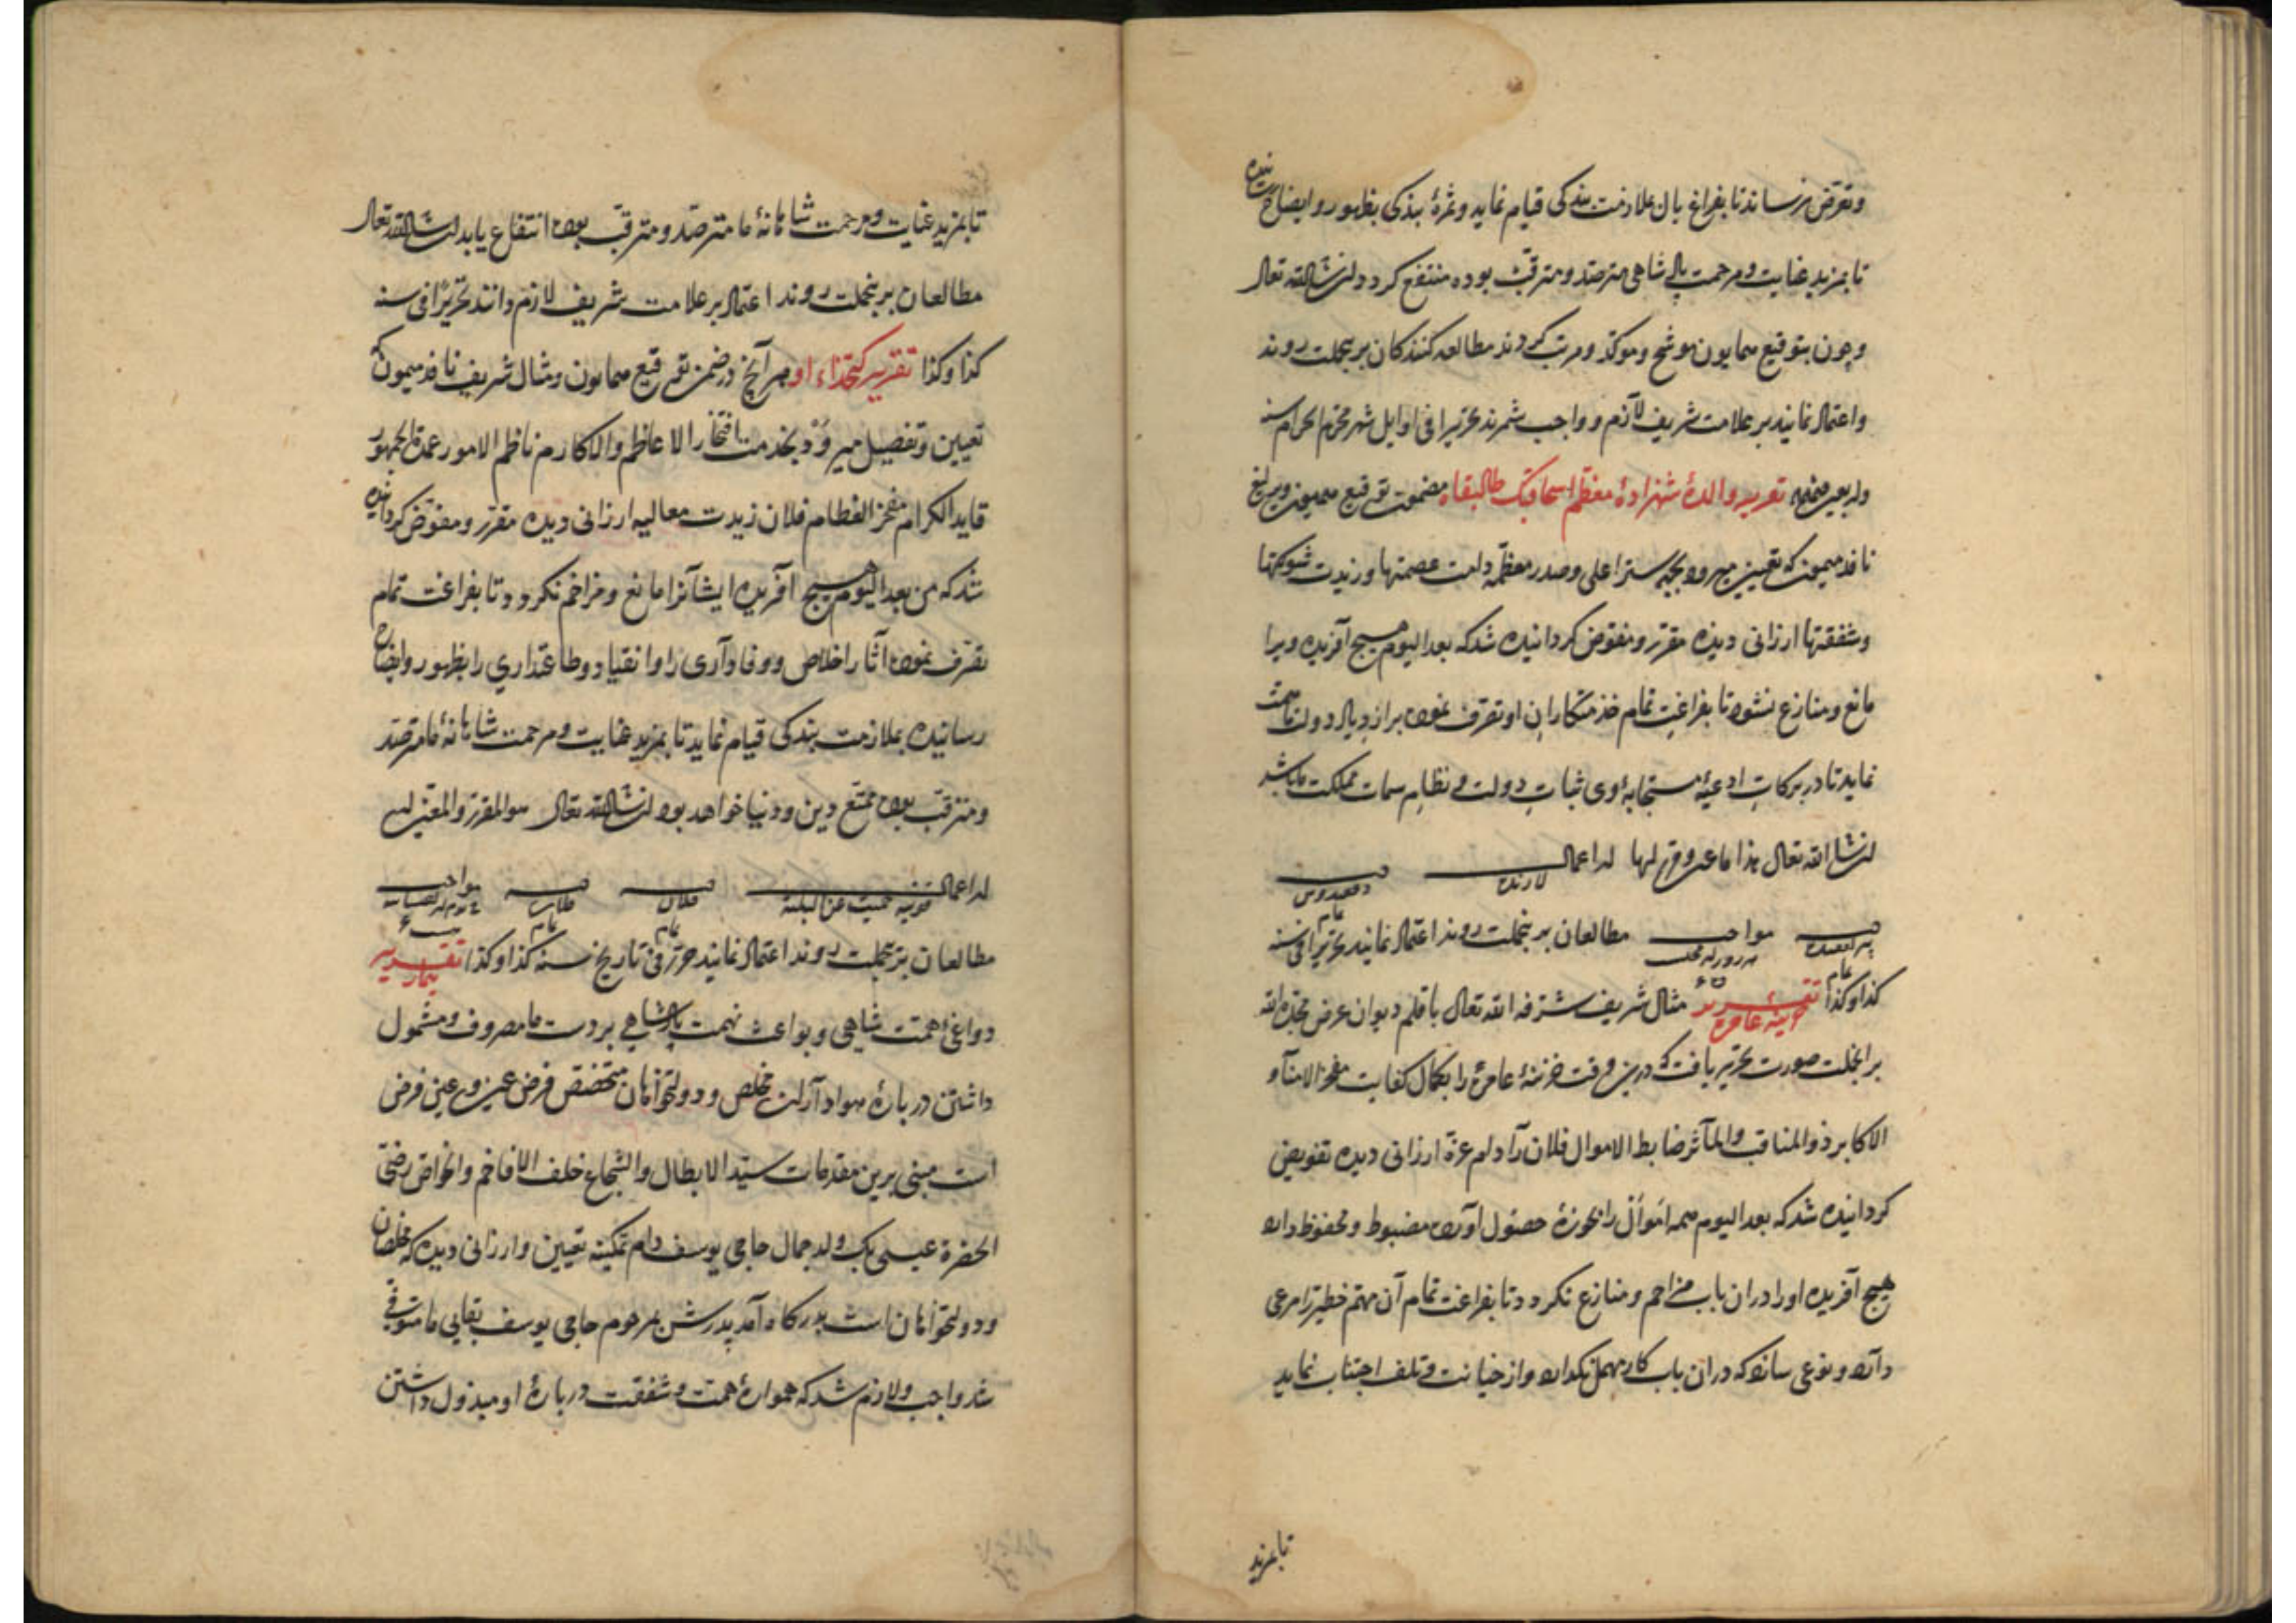 وتعرّض نرساند تا بفراغ بال بملازمت بندکی قیام نماید و ثمرۀ بندکی بظهور و ایضاح رسانیده
تا بمزید عنایت و مرحمت پادشاهی مترصد و مترقب بوده منتفع کردد ان شاالله تعالی
و چون بتوقیع همایون موشح و موکد و مرتب کردند مطالعه کنندکان برینجملت روند
و اعتماد نمایند بر علامت شریف لازم و واجب شمرند تحریرا فی اوایل شهر محرم الحرام سنه
تقریر والدۀ شهزادۀ معظم اسحاق بک طال بقاه مضمون توقیع همیون و یرلیغ
نافذ میمون که بتعیین میرود بجهة ستر اعلی و صدر معظمه دامت عصمتها و زیدت شوکتها
و شفقتها ارزانی دیده مقرر و مفوض کردانیده شد که بعد الیوم هیچ آفریده ویرا
مانع و منازع نشود تا بفراغت تمام خدمتکاران او تصرف نموده بر ازدیاد دولت ما همت
نماید تا در برکات ادعیۀ مستجابۀ وی ثبات دولت و نظام سمات مملکت ما باشد
ان شا الله تعالی هذا ما عین و قرر لها له اعمال لارنده
مواجب مطالعان برینجملت روند اعتماد نمایند تحریرا فی سنه
کذا و کذا تقریر خزینۀ عامره مثال شریف شرفه الله تعالی باقلم دیوان عرض مجده الله
برانجملت صورت تحریر یافت که درین وقت خزینۀ عامره را بکمال کفایت مفخر الامنا و
الاکابر ذو المناقب و المآثر ضابط الاموال فلان را دام عزه ارزانی دیده تفویض
کردانیده شد که بعد الیوم همه اموال را بحوزۀ حصول آورده مضبوط و محفوظ دارد
هیچ آفریده او را در ان باب مزاحم و منازع نکردد تا بفراغت تمام آن مهم خطیر را مرعی
دارد و نوعی سازد که در ان باب کار مهمل نکذارد و از خیانت و تلف اجتناب نماید
تا بمزید
تا بمزید عنایت و مرحمت شاهانۀ ما مترصد و مترقب بوده انتفاع یابد ان شا الله تعالی
مطالعان برینجملت روند اعتماد بر علامت شریف لازم دانند تحریرا فی سنه
کذا و کذا تقریر کتخداء او هر آنچ در ضمن توقیع همایون و مثال شریف نافذ میمون که
تعیین و تفصیل میرود بخدمت افتخار الاعاظم و الاکارم ناظم الامور عمدة الجمهور
قاید الکرام مفخر العظام فلان زیدت معالیه ارزانی دیده مقرر و مفوض کردانیده
شد که من بعد الیوم هیچ آفریده ایشانرا مانع و مزاحم نکردد تا بفراغت تمام
تصرف نموده آثار اخلاص و وفادآری را و انقیاد و طاعتداری را بظهور و ایضاح
رسانیده بملازمت بندکی قیام نماید تا بمزید عنایت و مرحمت شاهانۀ ما مترصد
و مترقب بوده متمتع دین و دنیا خواهد بود ان شا الله تعالی هو المقرر و المعین له
له اعمال قونیه فلان فلان مواجب
مطالعان برینجملت روند اعتماد نمایند حرر فی تاریخ سنه کذا و کذا تقریر
دواعی همت شاهی و بواعث نهمت پادشاهی بر دست ما مصروف و مشمول
داشتن دربارۀ هوادآران مخلص و دولتخواهان متخصص فرض عین و عین فرض
است مبنی برین مقدمات سید الابطال و الشجاع خلف الافاخم و الخواص رضی
الحضرة عیسی بک ولد جمال حاجی یوسف دام تمکینه تعیین و ارزانی دیده که مخلصان
و دولتخواهان است بدرکاه آمد پدرش مرحوم حاجی یوسف بقایی ما متوفی
شد واجب و لازم شد که همواره همت و شفقت دربارۀ او مبذول داشتن